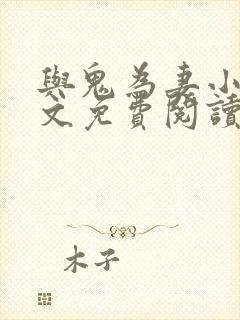 與鬼為妻小
文免費閱讀
木子